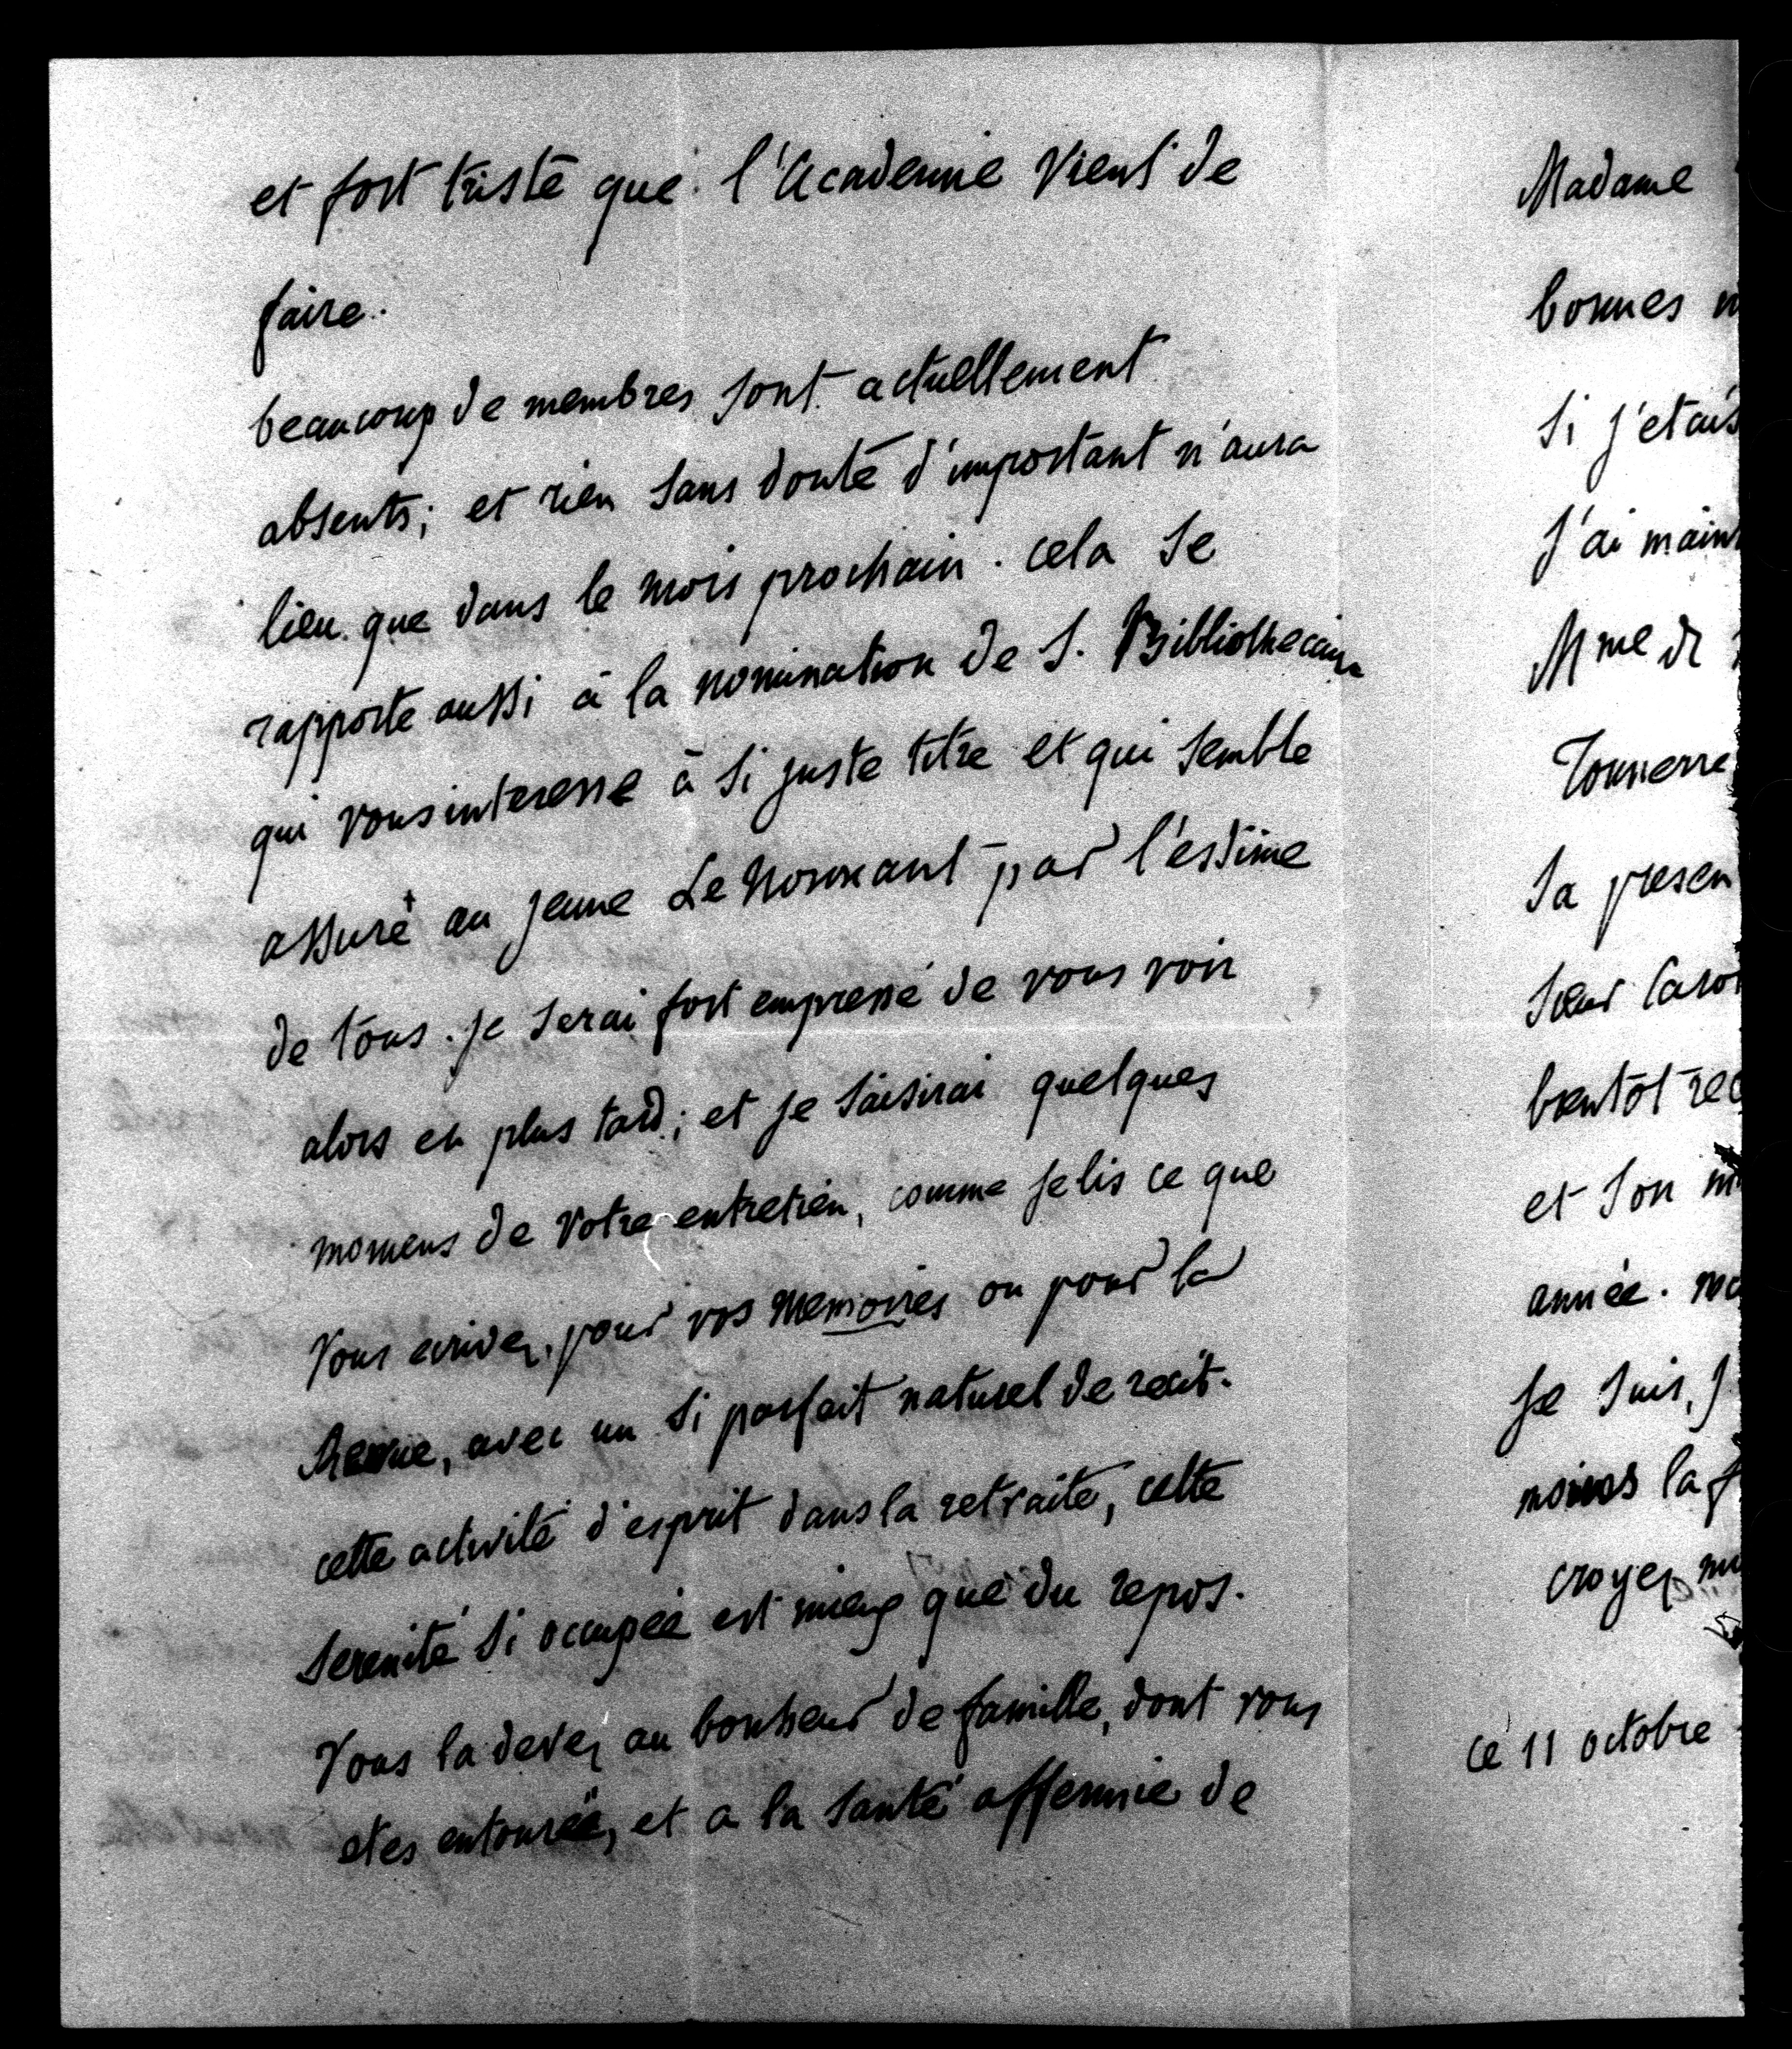 et fort triste que l'Academie vient de
faire.
beaucoup de membres sont actuellement
absents; et rien sans doute d'important n'aura
lieu que dans le mois prochain. cela se
rapporte aussi à la nomination de S. Bibliothecaire
qui vous interesse à si juste titre et qui semble
assuré au jeune Le Normant par l'estime
de tous. je serai fort empressé de vous voir
alors en plus tard; et je saisirai quelques
momens de votre entretien, comme je lis ce que
vous ecrivez, pour vos memoires ou pour la
Revue, avec un si parfait naturel de recit.
cette activité d'esprit dans la retraite, cette
serenité si occupée est mieux que du repos.
Vous la devez au bonheur de famille, dont vous
etes entourée, et a la santé affermie de
Madame
bonnes
si j'etais
j'ai main
Mme de
Tonnerre
sa presen
soeur Caro
bientôt rec
et son
année.
je suis, j
moins la
croyez
ce 11 octobre